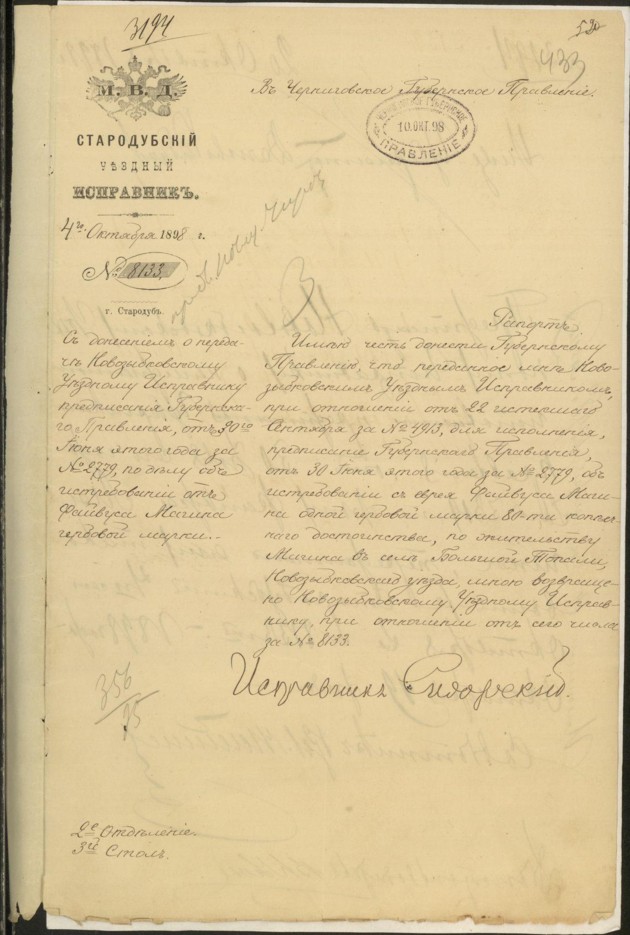 3194
530
433
М. В. Д.
СТАРОДУБСКІЙ
УѢЗДНЫЙ
ИСПРАВНИКЪ.
4го Октября 1898 г.
№ 8133
г. Стародубъ.
Въ Черниговское Губернское Правленіе.
10.ОКТ.98
ПРАВЛЕНІЕ
Съ донесеніемъ о переда-
чѣ Новозыбковскому
Уѣздному Исправнику
предписанія Губернска-
го Правленія, отъ 30го
Іюня этого года за
№ 2779, по дѣлу объ
истребованіи отъ
Файвуса Магина
гербовой марки.
Рапортъ.
Имѣю честь донести Губернскому
Правленію, что переданное мнѣ Ново-
зыбковскимъ Уѣзднымъ Исправникомъ,
при отношеніи отъ 22 истекшаго
Сентября за № 4913, для исполненія,
предписаніе Губернскаго Правленія,
отъ 30 Іюня этого года за № 2779, объ
истребованіи съ еврея Файвуса Маги-
на одной гербовой марки 80-ти копѣеч-
наго достоинства, по жительству
Магина въ селѣ Большой Топали,
Новозыбковскаго уѣзда, мною возвраще-
но Новозыбковскому Уѣздному Исправ-
нику, при отношеніи отъ сего числа
за № 8133.
Исправникъ
356
95
2е Отдѣленіе.
3й Столъ.